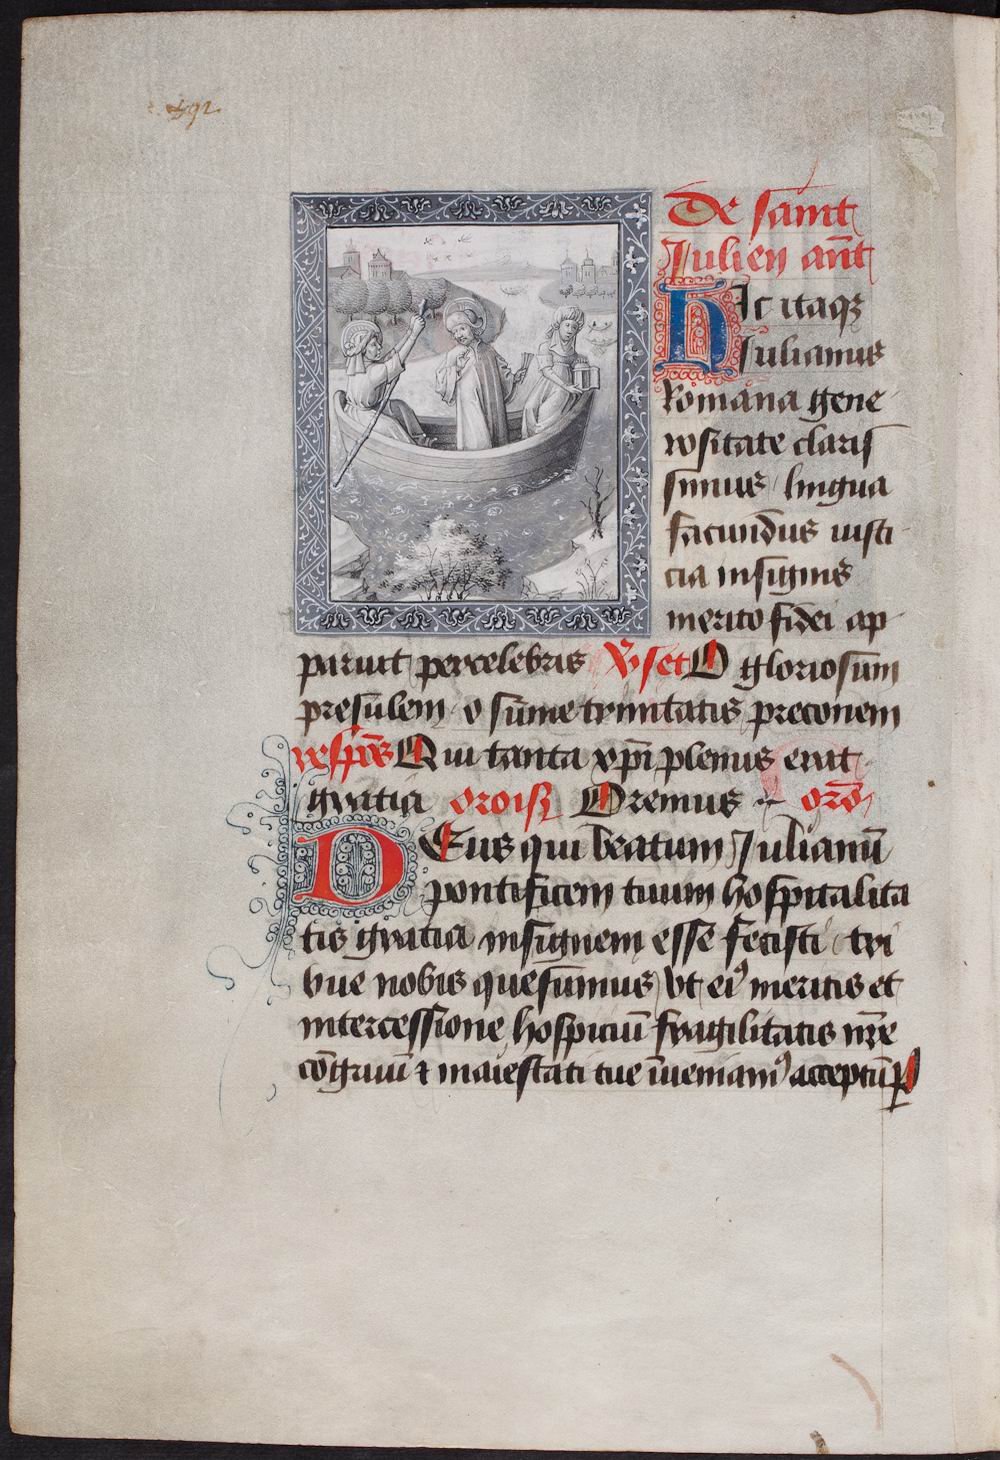 492
De saint
Julien ant̄
Hic itaqꝫ
Iulianus
Romana gene
rositate claris
simus lingua
facundus iusti
cia insignis
merito fidei ap
paruit percelebris O gloriosum
presulem o sūme trinitatis preconem
Qui tanta xp̄i plenus erat
gratia oroisꝫ Oremus oro᷒
DEus qui beatum Iulianū
pontificem tuum hospitalita
tis gratia insignem esse fecisti tri
bue nobis quesumus vt eiꝰ meritis et
intercessione hospiciū fragilitatis nr̄e
cōgruū ⁊ maiestati tue īueniamꝰ acceptū P